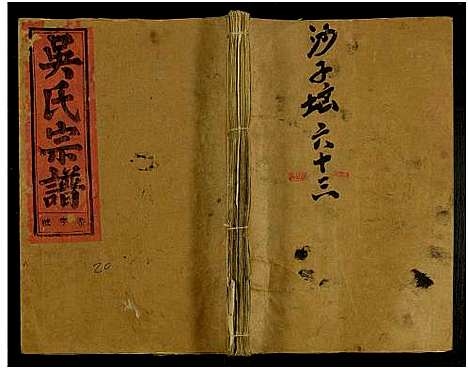 吳氏宗譜
20
沙子塆六十三